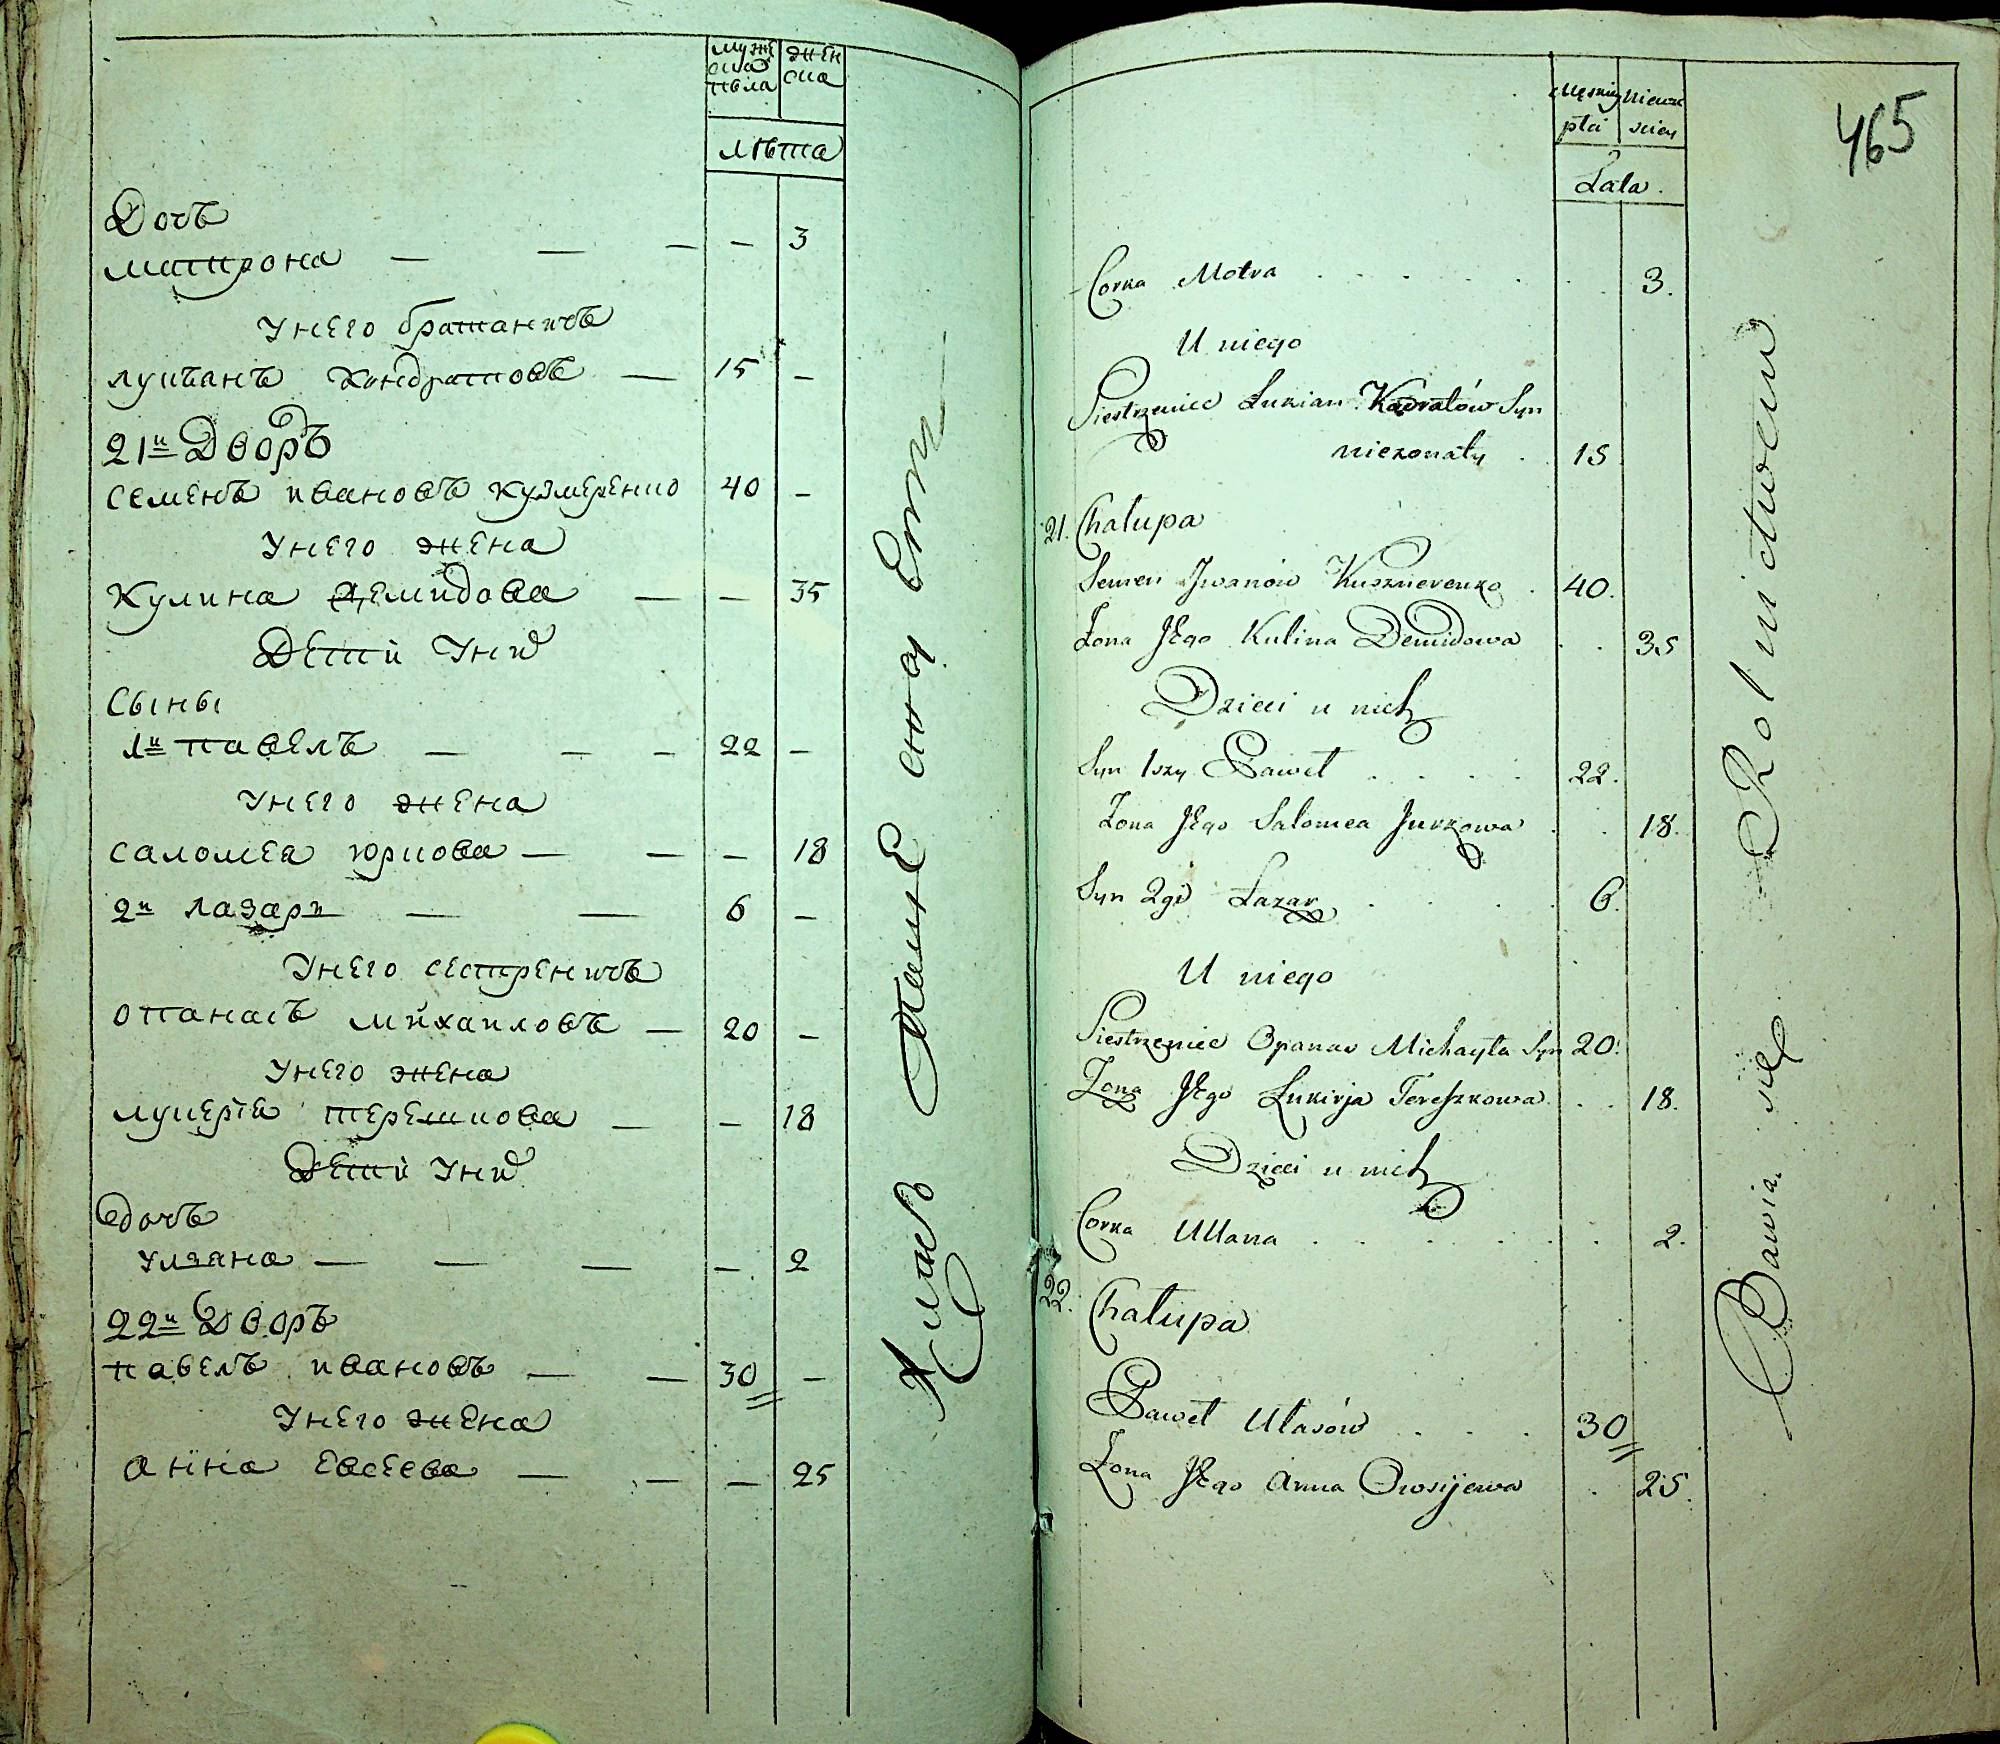 мужеска пола
женска
лѣта
Дочъ
матрона — — — — 3
У него братаничъ
лукъанъ Кондратовъ — 15 —
21й Дворъ
семенъ ивановъ кузмеренко 40 —
У него жена
Кулина Демидова — — 35
Дети У них
Сыны
1й павелъ — — — 22 —
У него жена
саломея юркова — — — 18
2й лазарь — — 6 —
У него сестреничъ
опанасъ михаиловъ — 20 —
У него жена
лукеріа терешкова — — 18
Дети У них
дочъ
улзана — — — — 2
22й Дворъ
павелъ ивановъ — — 30 —
У него жена
анна евсеева — — — 25
465
Męskiey płci
Lata.
Corka Motra 3.
U niego
Siestrzeniec Lukian Kadratów Syn
niezonaty 15
21. Chałupa
Semen Jwanow Kusznierenko 40.
Zona Jego Kulina Demidowa 35
Dzieci u nich
Syn 1szy Paweł 22.
Zona Jego Salomea Jurkowa 18.
Syn 2gi Łazar 6.
U niego
Siestrzeniec Opanas Michayła Syn 20.
Zona Jego Łukirja Tereszkowa 18.
Dzieci u nich
Corka Ullana 2.
22. Chałupa
Paweł Ułasów 30
Zona Jego Anna Owsijewa 25.
Bawią się Rolnictwem